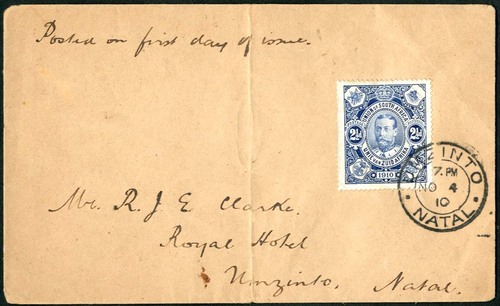 Posted on first day of issue.
UNION OF SOUTH AFRICA
2½ 2½
UNIE VAN ZUID AFRIKA
1910
UMZINTO
7. PM
NO 4
10
NATAL
Mr. R. J. E. Clarke.
Royal Hotel
Umzinto. Natal.